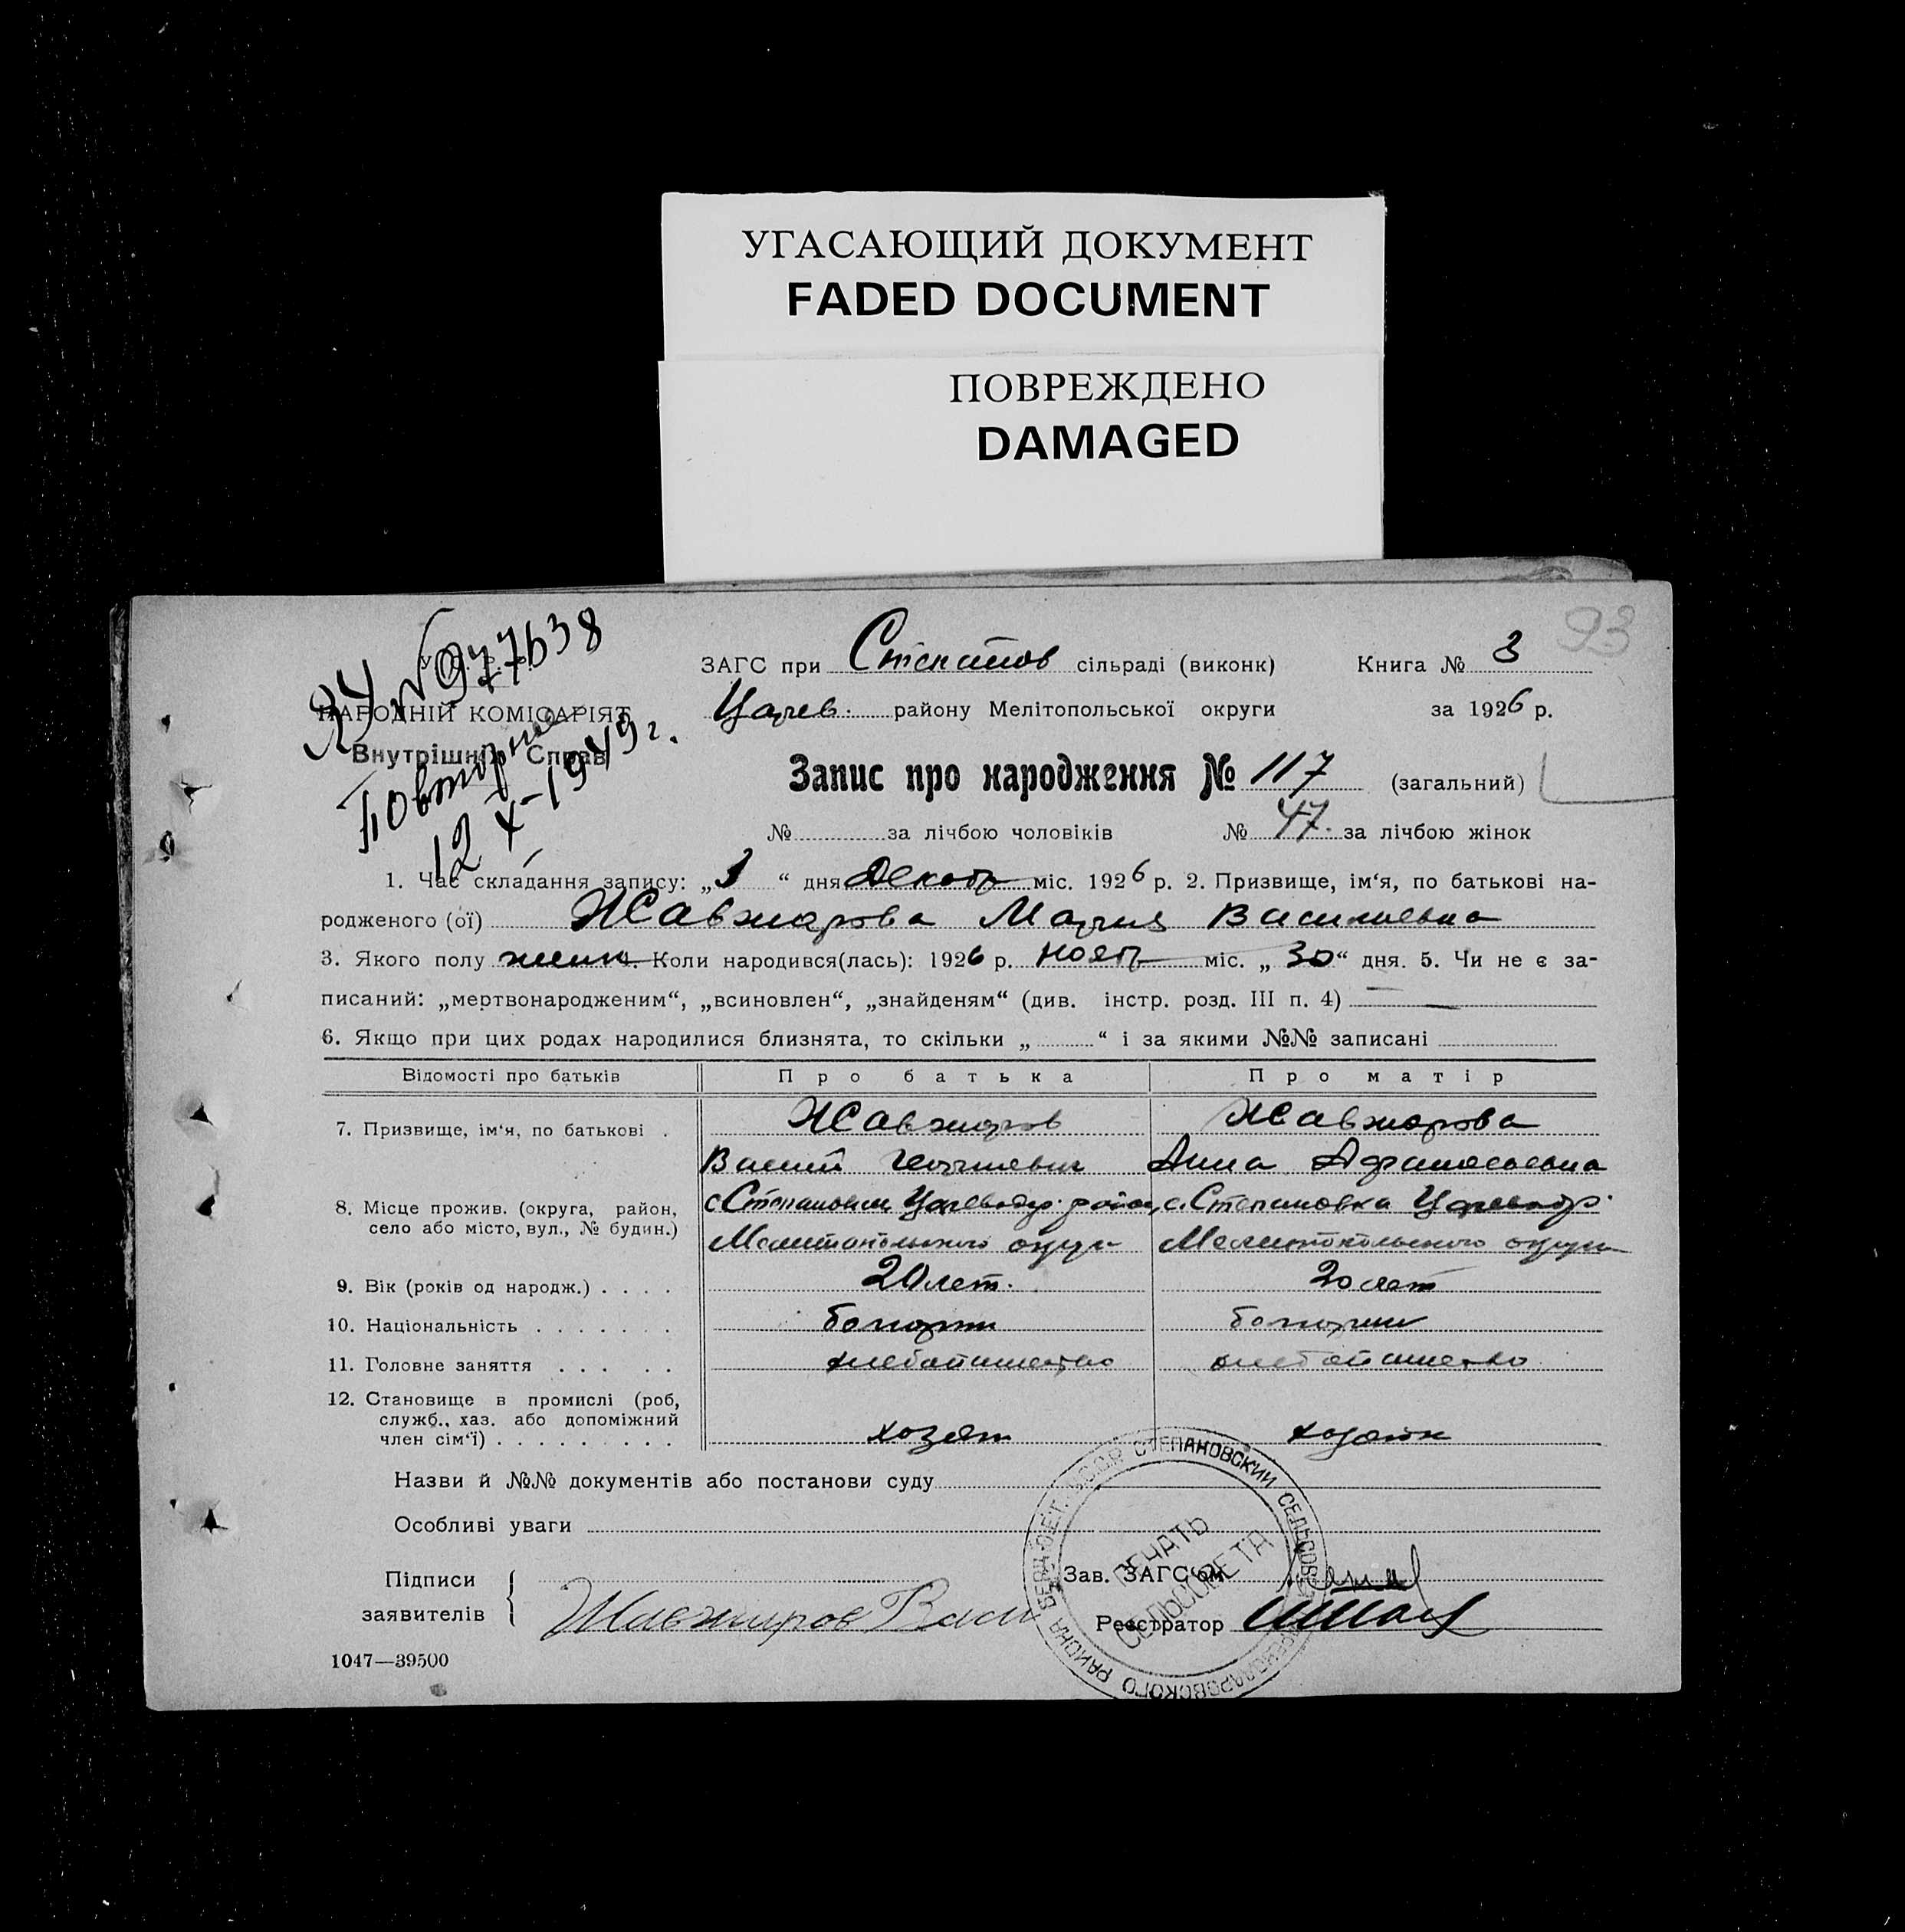 УГАСАЮЩИЙ ДОКУМЕНТ
FADED DOCUMENT
ПОВРЕЖДЕНО
DAMAGED
93
ЯЧ № 977638
Повторно
12 X-1949 г.
НАРОДНІЙ КОМІСАРІЯТ
Внутрішніх Справ
ЗАГС при Степанов сільраді (виконк) Книга № 3
Царев. району Мелітопольської округи за 1926 р.
Запис про народження № 117 (загальний)
№ за лічбою чоловіків № 47. за лічбою жінок
1. Час складання запису: „3“ дня декабр міс. 1926 р. 2. Призвище, ім‘я, по батькові на-
родженого (ої) Жавжарова Мария Василиевна
3. Якого полу женск. Коли народився(лась): 1926 р. нояб міс. „30“ дня. 5. Чи не є за-
писаний: „мертвонародженим“, „всиновлен“, „знайденям“ (див. інстр. розд. III п. 4)
6. Якщо при цих родах народилися близнята, то скільки „ “ і за якими №№ записані
Відомості про батьків Про батька Про матір
7. Призвище, ім‘я, по батькові . Жавжаров Жавжарова
Василий Анна Афанасьевна
8. Місце прожив. (округа, район, с. Степановка Цареводар. район, с. Степановка Цареводр.
село або місто, вул., № будин.)
Мелитопольского округа Мелитопольского округа
9. Вік (років од народж.) . . . . 20 лет. 20 лет
10. Національність . . . . . . . болгарин болгарин
11. Головне заняття . . . . . хлебопашество хлебопашество
12. Становище в промислі (роб,
служб., хаз. або допоміжний
член сім‘ї) . . . . . . . . . хозяин
Назви й №№ документів або постанови суду
Особливі уваги
Підписи
заявителів Жавжаров Васи
Зав. ЗАГС‘ом
Реєстратор
1047—39500
СТЕПАНОВСКИЙ СЕЛЬСОВЕТ
РАЙОНА БЕРД. ОКТ. У.С.С.Р.
ПЕЧАТЬ
СЕЛЬСОВЕТА